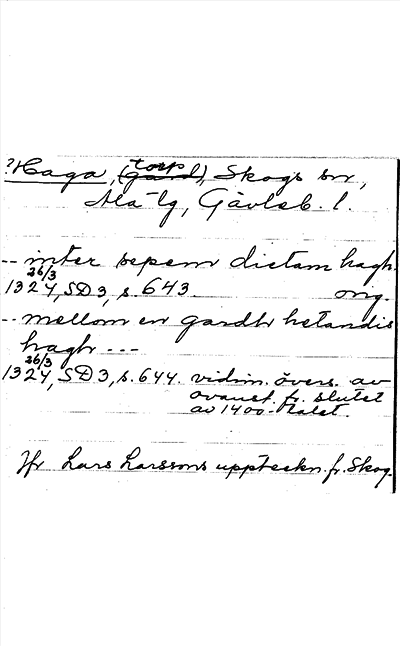 ? Haga, (torp gård), Skogs sn,
Ala lg, Gävleb. l.
-- inter sepem dictam hagh.
26/3
1324, SD 3, s. 643. orig.
-- mellom en gardh hetandis
hagh ---
26/3
1324, SD 3, s. 644. vidim. övers. av
ovanst. fr. slutet
av 1400-talet.
Jfr Lars Larssons uppteckn. fr. Skog.